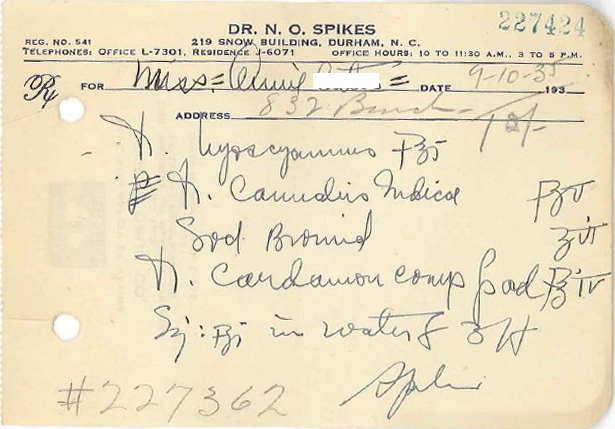 227424
DR. N. O. SPIKES
REG. NO. 541 219 SNOW BUILDING, DURHAM, N. C.
TELEPHONES: OFFICE L-7301, RESIDENCE J-6071 OFFICE HOURS: 10 TO 11:30 A.M., 3 TO 5 P.M.
℞ FOR Miss Annie DATE 9-10-35 193
ADDRESS 832
Hyoscyamus
Cannabis Indica
Sod Bromid
Cardamon Comp
Sig: in water
Spikes
#227362